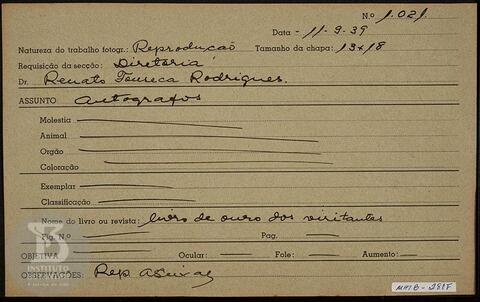 Nº 1.021
Data - 11-9-39
Natureza do trabalho fotogr.: Reprodução Tamanho da chapa: 13x18
Requisição da secção: Diretoria
Dr. Renato Fonseca Rodrigues.
ASSUNTO autografos
Molestia
Animal
Orgão
Coloração
Exemplar
Classificação
Nome do livro ou revista: livro de ouro dos visitantes
Fig. Nº Pag.
OBJETIVA Ocular: Fole: Aumento:
OBSERVAÇÕES: Rep.
INSTITUTO